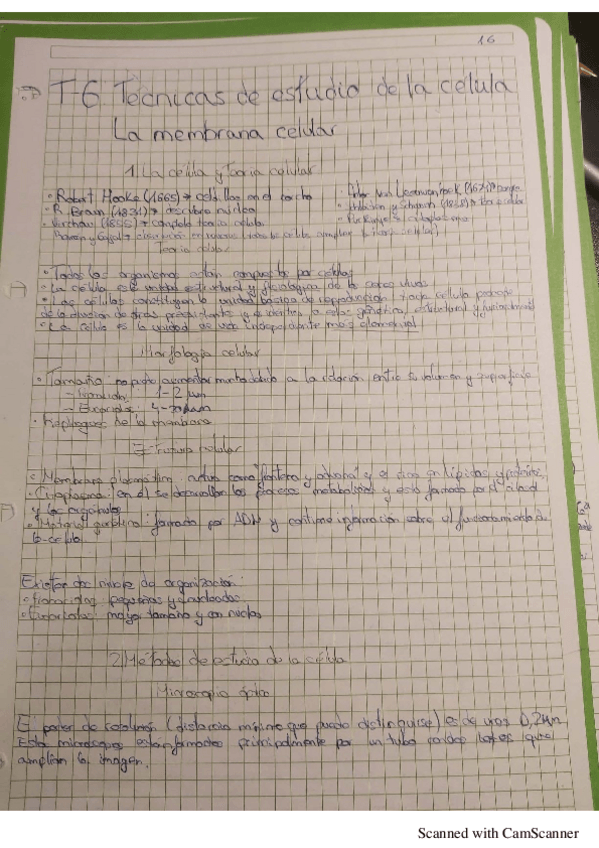 16
T-6 Técnicas de estudio de la célula
La membrana celular
1. La célula y Teoría celular
· Robert Hooke (1665) → celdillas en el corcho
· R. Brown (1831) → descubre núcleo
· Virchow (1855) → completa teoría celular
Teoría celular
· Todos los organismos están compuestos por células
· La célula es la unidad estructural y fisiológica de los seres vivos
· Las células constituyen la unidad básica de reproducción: cada célula procede
de la división de otras
· La célula es la unidad de vida independiente más elemental
Morfología celular
· Tamaño: no puede aumentar mucho debido a la relación entre su volumen y superficie
1-2 µm
· Repliegues de la membrana
Estructura celular
· Membrana plasmática: actúa como frontera y
· Citoplasma: en él se desarrollan los procesos metabólicos y está formado por el citosol
y los orgánulos
· Material genético: formado por ADN y contiene información sobre el funcionamiento de
la célula
Existen dos niveles de organización:
· Procariotas: pequeñas y
· Eucariotas: mayor tamaño y con núcleo
2) Métodos de estudio de la célula
Microscopio óptico
El poder de resolución (distancia mínima que puede distinguirse) es de unos 0,2µm
Estos microscopios están formados principalmente por un tubo con dos lentes que
amplían la imagen.
Scanned with CamScanner